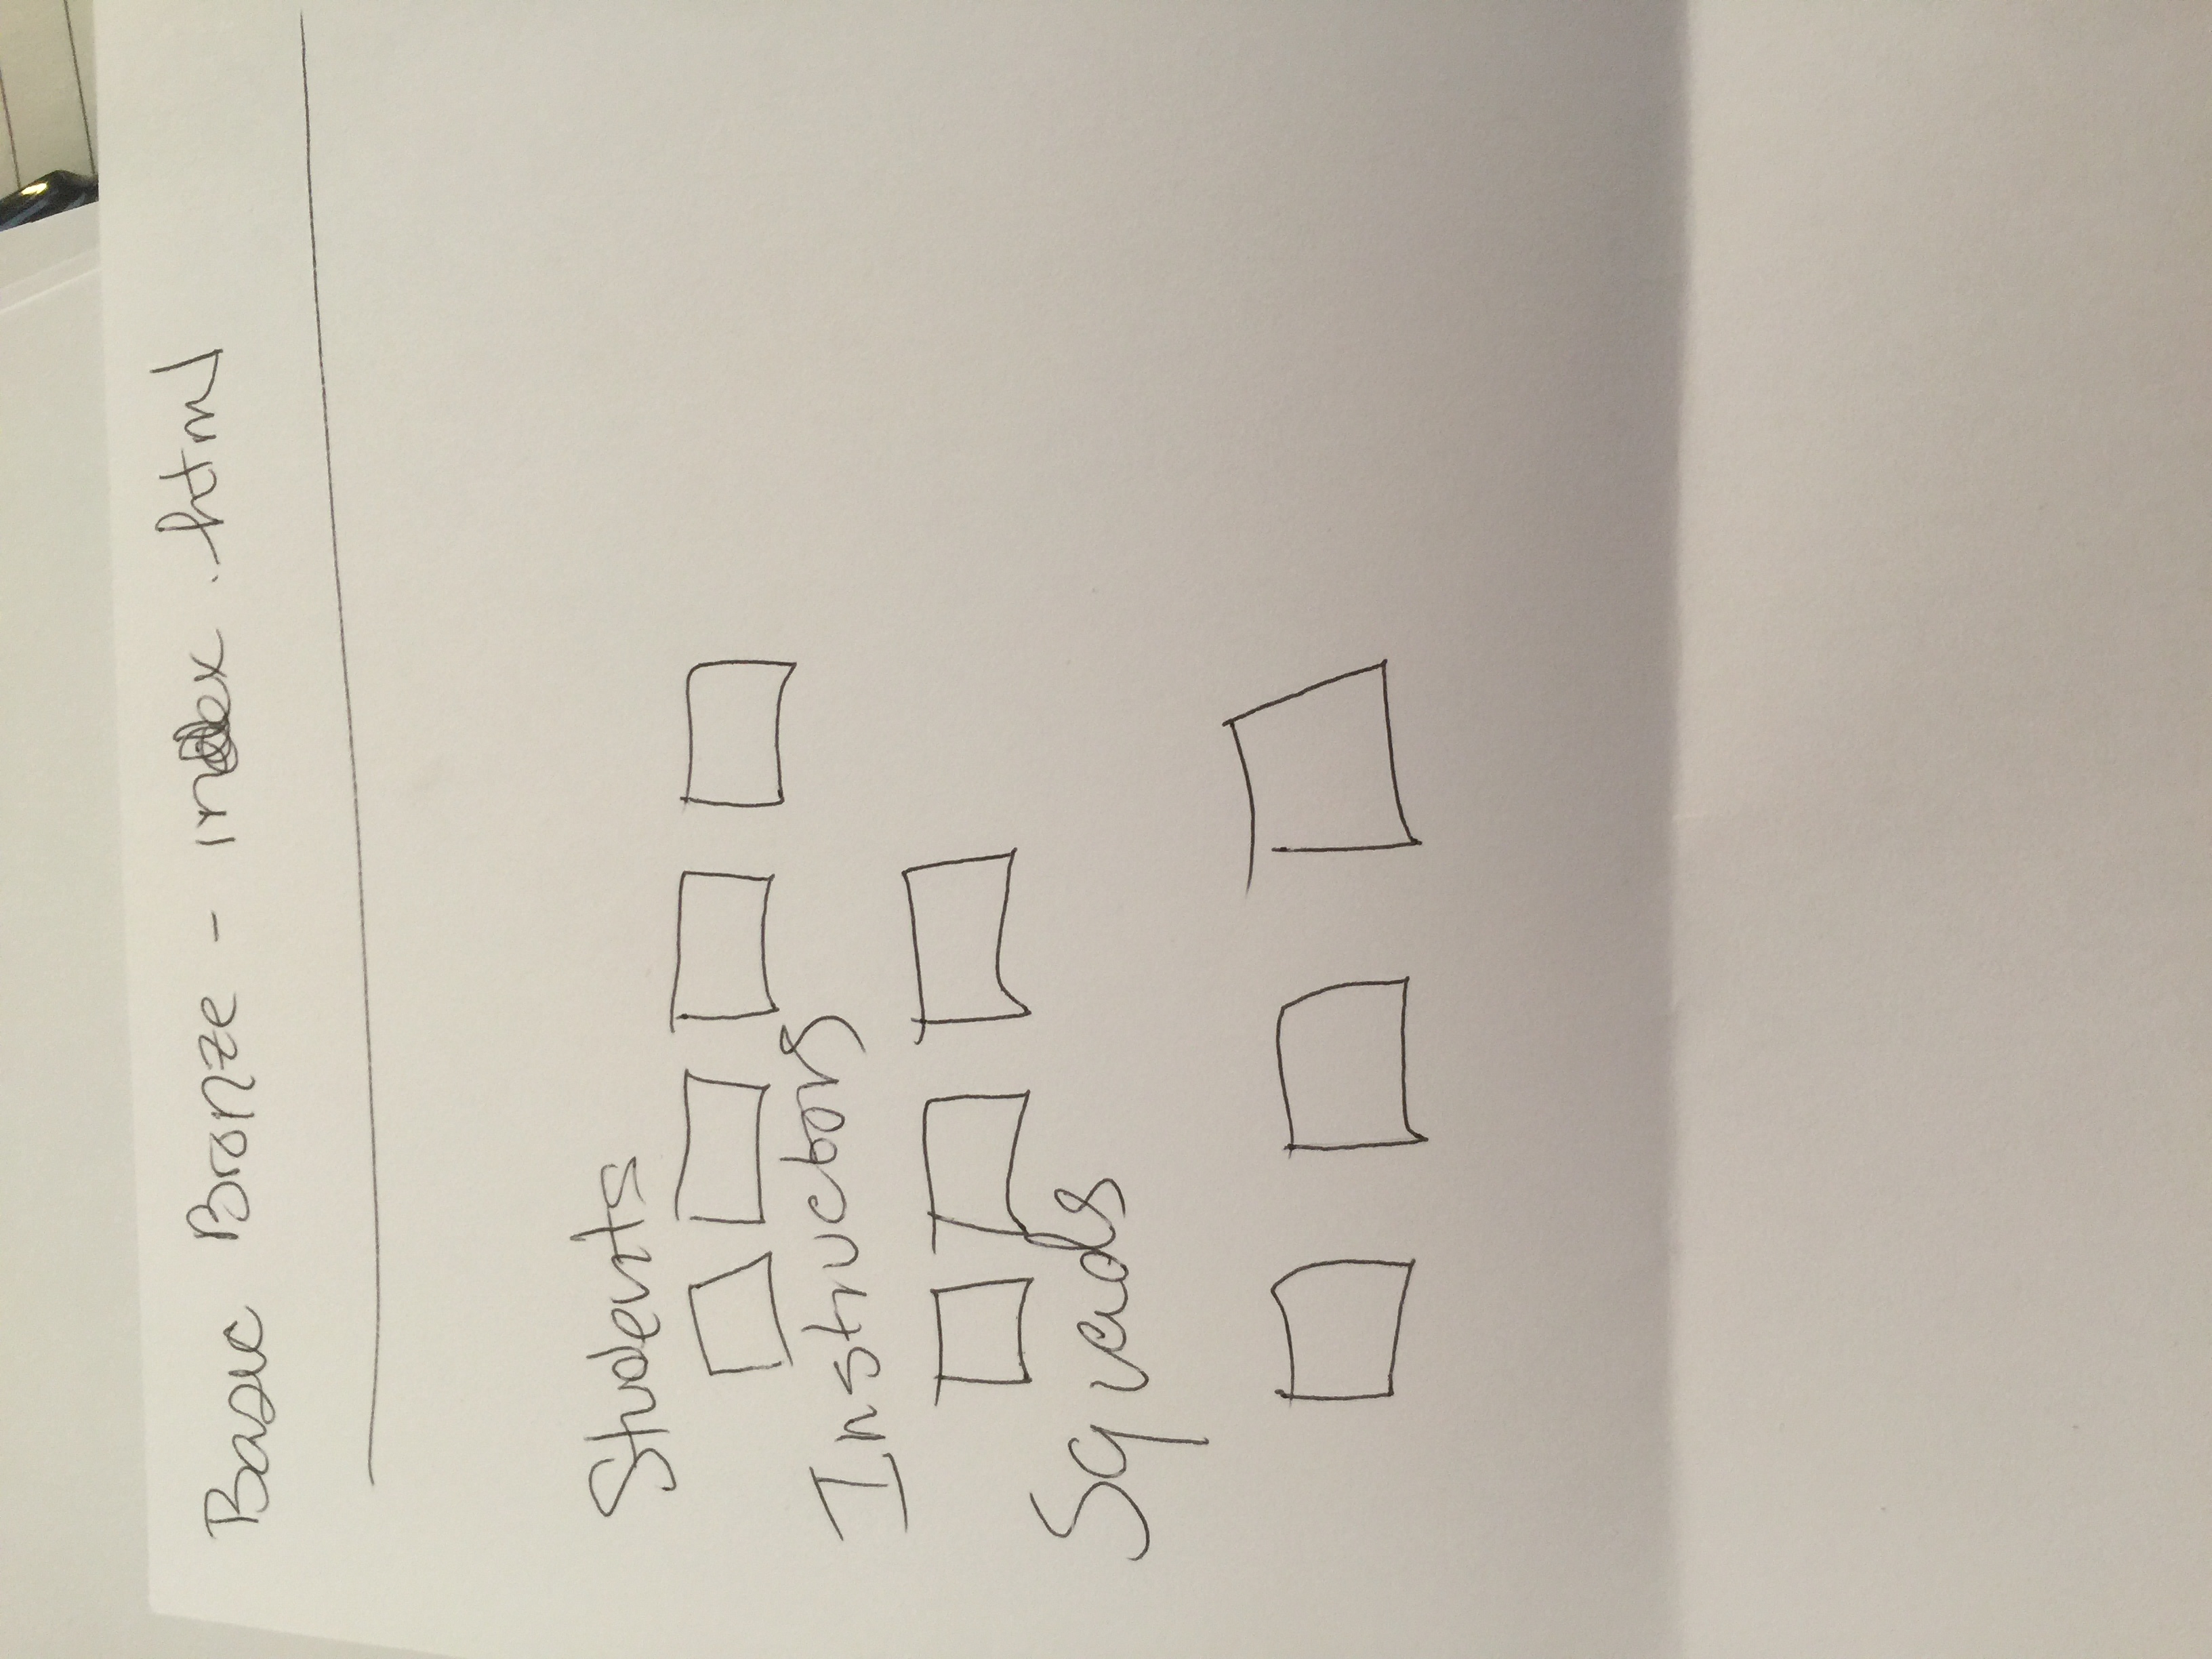 Basic Bronze - index.html
Students
Instructors
Squads